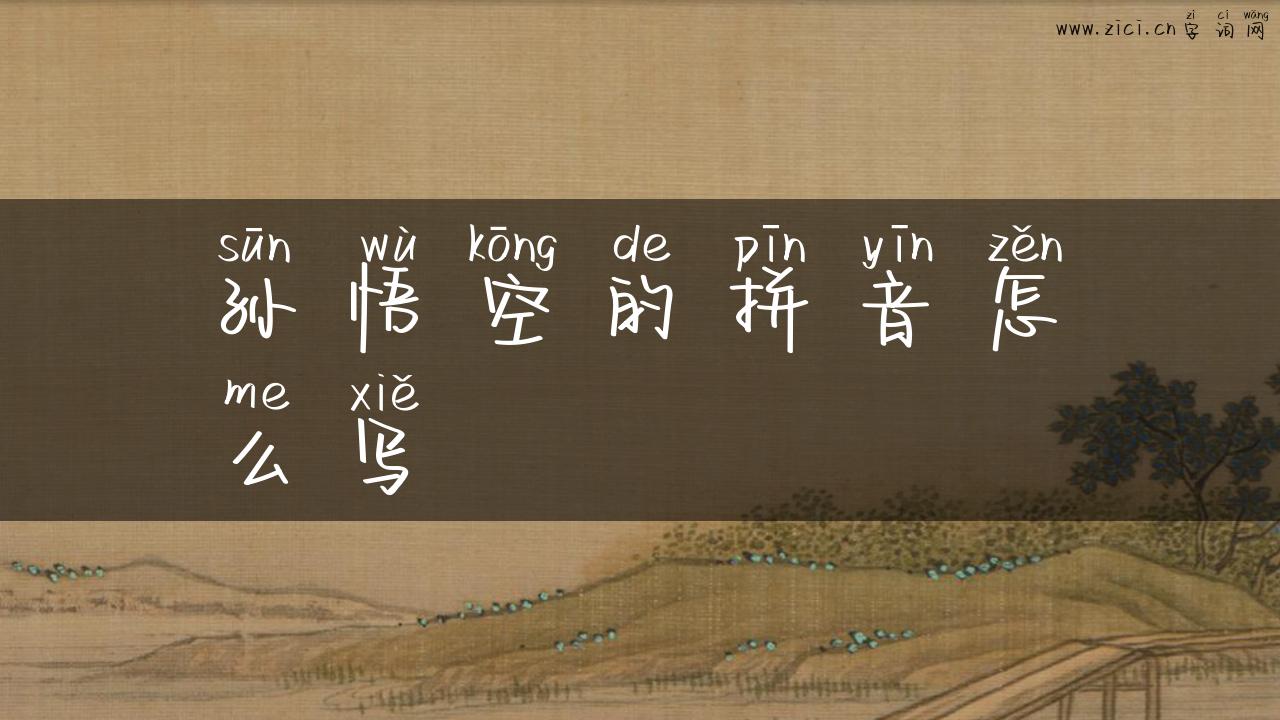 zì cí wǎng
www.zici.cn 字词网
sūn wù kōng de pīn yīn zěn
孙悟空的拼音怎
me xiě
么写